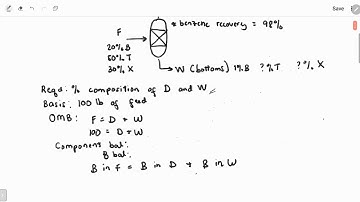 * benzene recovery = 98%
F
20% B
50% T
30% X
W (bottoms) 1% B ? % T ? % X
Reqd: % composition of D and W
Basis: 100 lb of feed
OMB: F = D + W
100 = D + W
Component bal:
B bal:
B in F = B in D + B in W